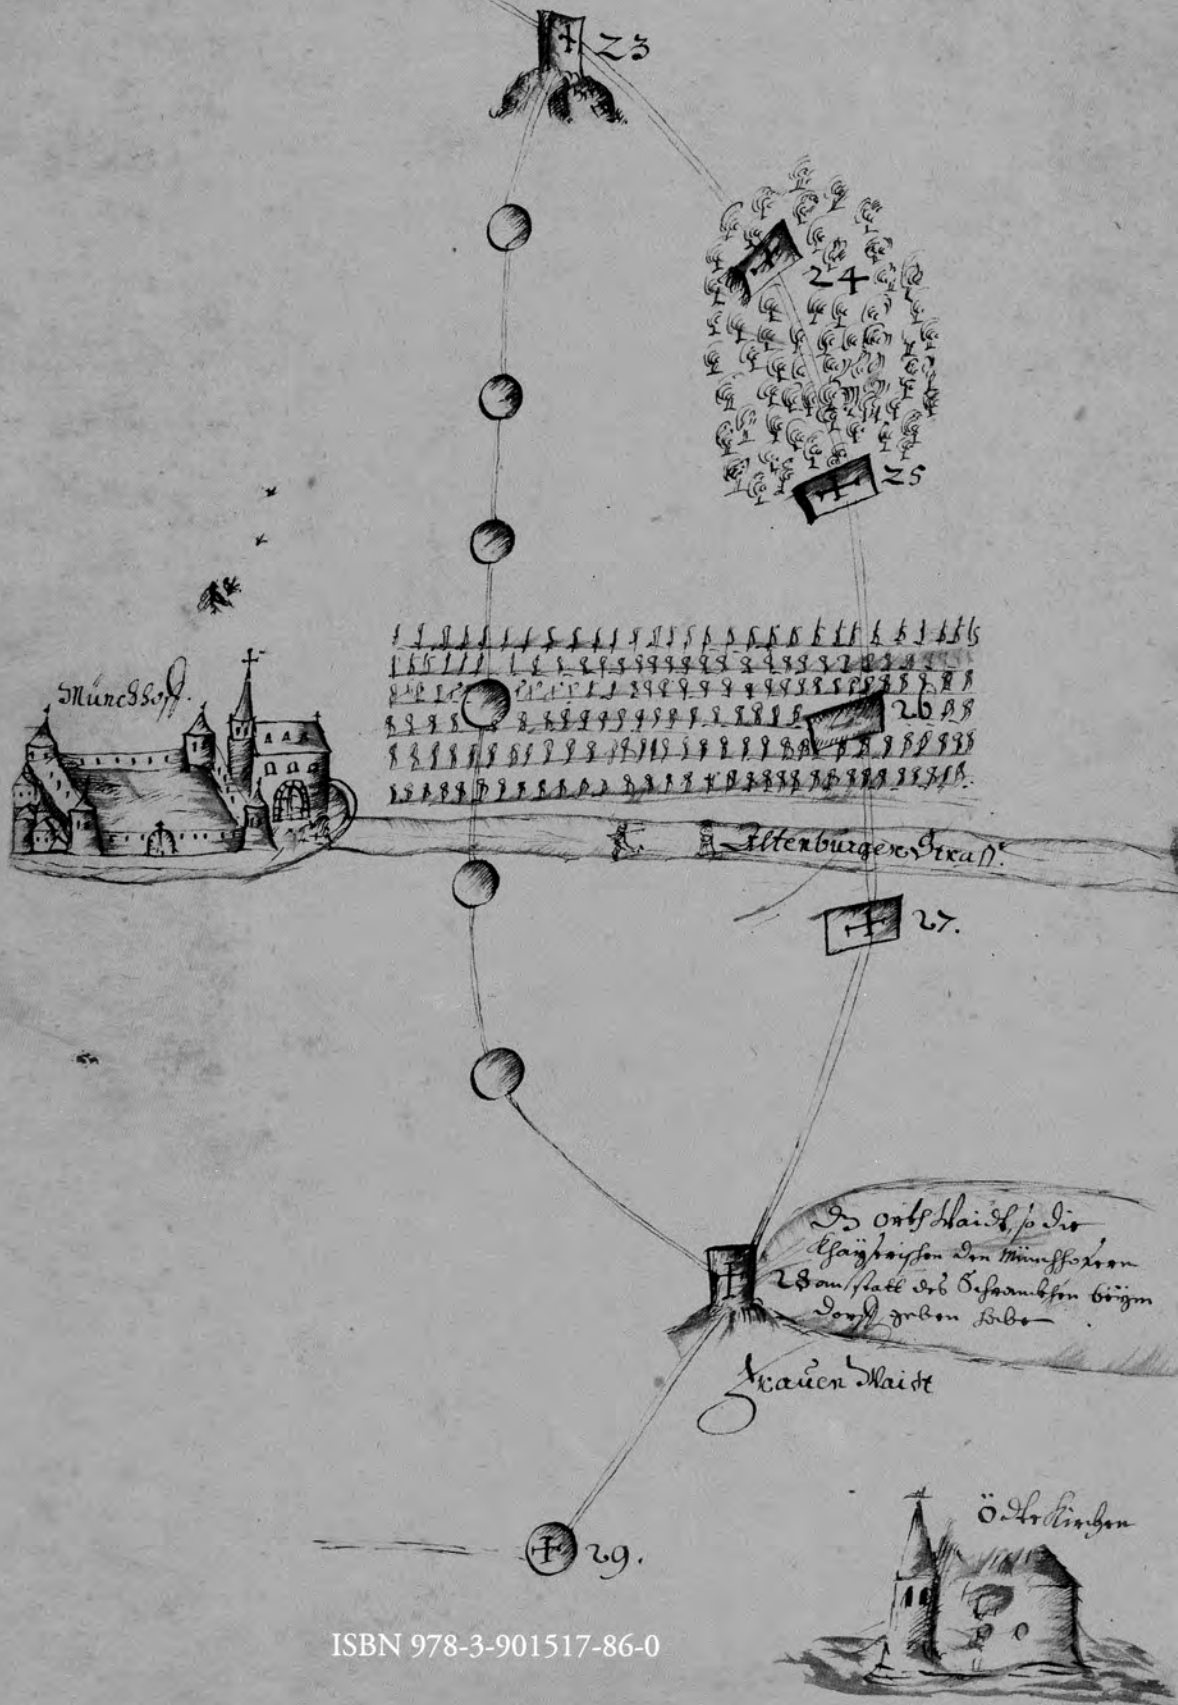 23
24
25
Münchhoff.
26
Altenburger Straß.
27.
orth Waidt, so die
Khayserischen den Münchhofern
28 anstatt des Schranckhen beÿm
dorff geben habe
Frauen Waidt
Ödte Kirchen
29.
ISBN 978-3-901517-86-0